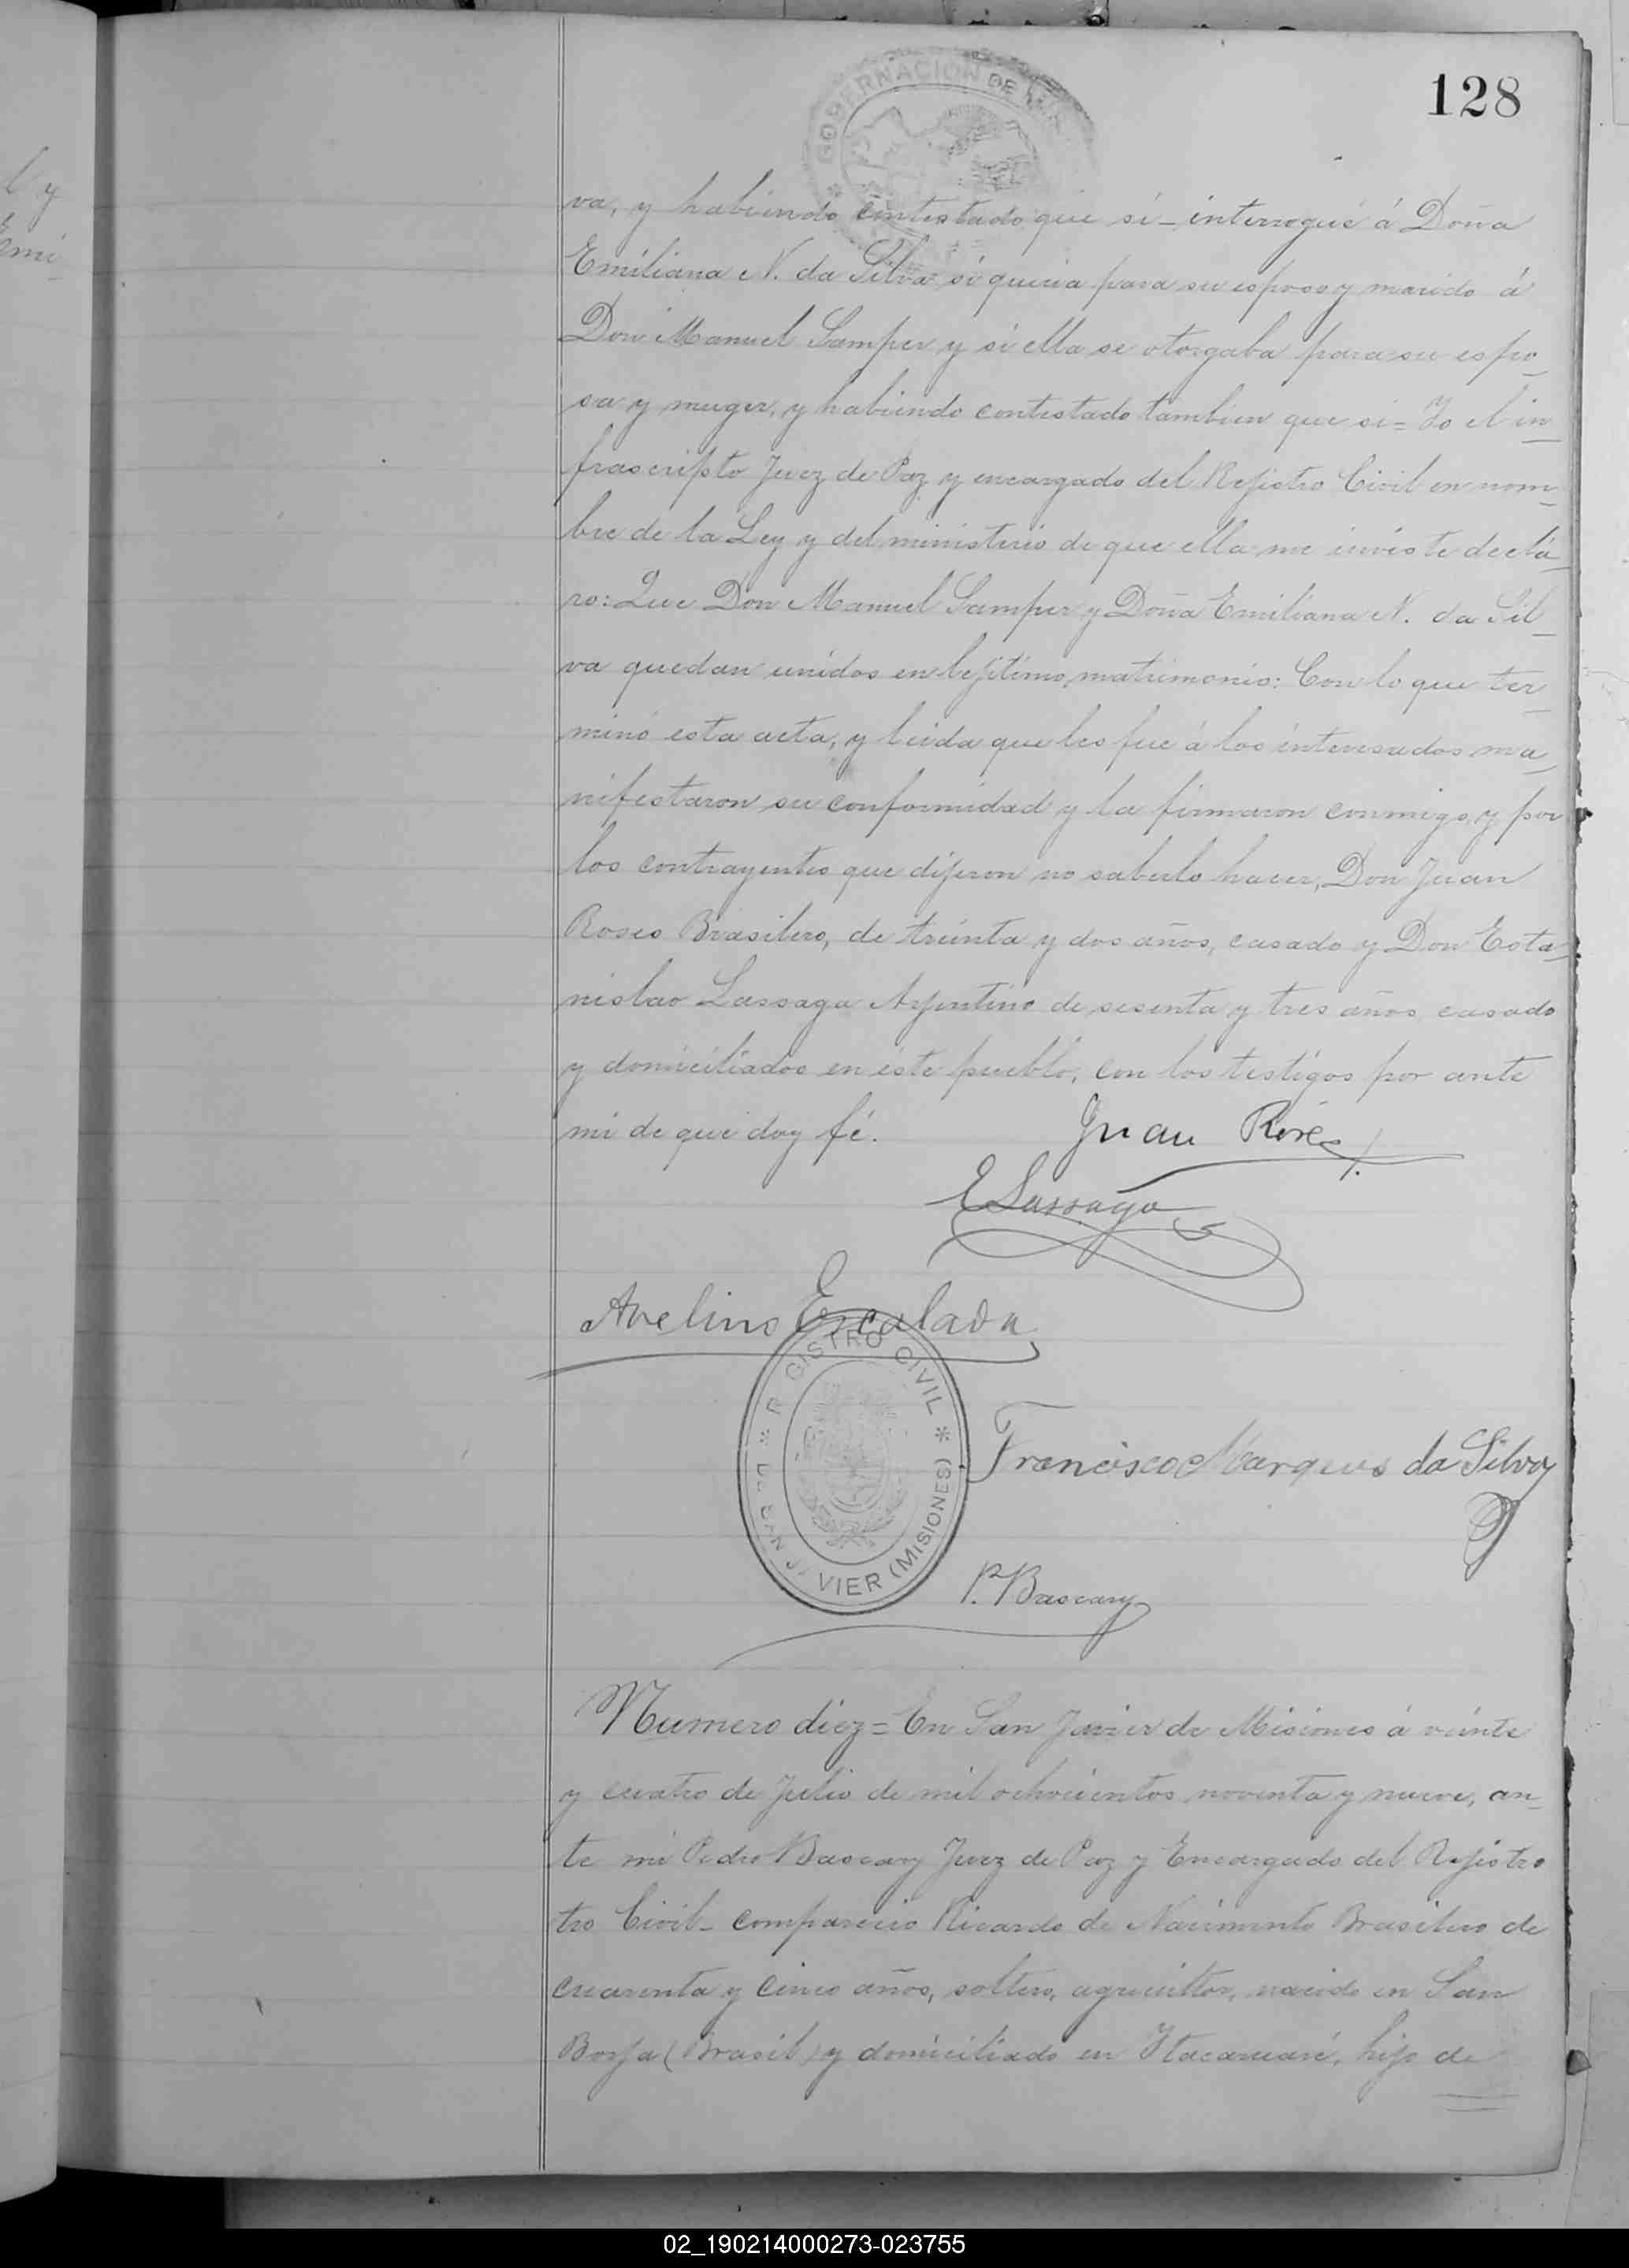 128
GOBERNACION DE
va, y habiendo contestado que sí – interrogué á Doña
Emiliana N. da Silva si queria para su esposo y marido á
Don Manuel Samper y si ella se otorgaba para su espo_
sa y muger, y habiendo contestado tambien que si = Yo el in_
frascripto Juez de Paz y encargado del Rejistro Civil en nom_
bre de la Ley y del ministerio de que ella me inviste declá_
ro: Que Don Manuel Samper y Doña Emiliana N. da Sil_
va quedan unidos en lejitimo matrimonio: Con lo que ter_
minó esta acta, y leida que les fue á los interesados ma_
nifestaron su conformidad y la firmaron conmigo, y por
los contrayentes que dijeron no saberlo hacer, Don Juan
Roses Brasilero, de treinta y dos años, casado y Don Esta_
nislao Lassaga Arjentino de sesenta y tres años casado
y domiciliados en éste pueblo, con los testigos por ante
mi de que doy fé.
Juan Roses
E Lassaga
Avelino Escalada
REGISTRO CIVIL * DE SAN JAVIER (MISIONES) *
Francisco Marques da Silva
P. Bascary
Numero diez = En San Javier de Misiones á veinte
y cuatro de Julio de mil ochocientos noventa y nueve, an_
te mi Pedro Bascary Juez de Paz y Encargado del Rejistro
tro Civil – comparecio Ricardo de Nacimento Brasilero de
cuarenta y cinco años, soltero, agricultor, nacido en San
Borja (Brasil) y domiciliado en Itacaruaré, hijo de
02_190214000273-023755